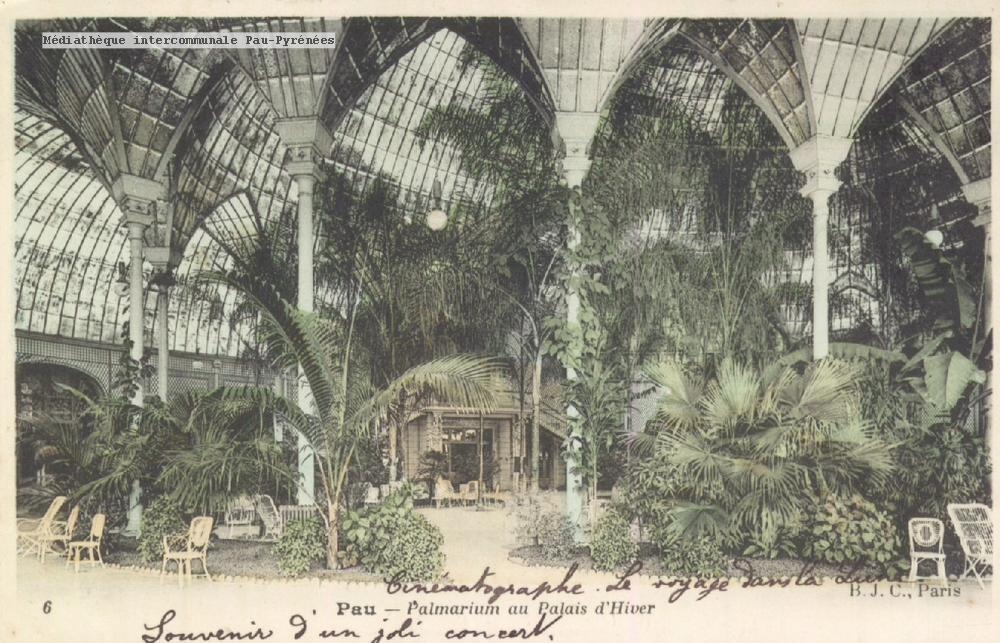 Médiathèque intercommunale Pau-Pyrénées
Cinématographe. Le voyage dans la Lune
B. J. C., Paris
6 Pau — Palmarium au Palais d'Hiver
Souvenir d'un joli concert.